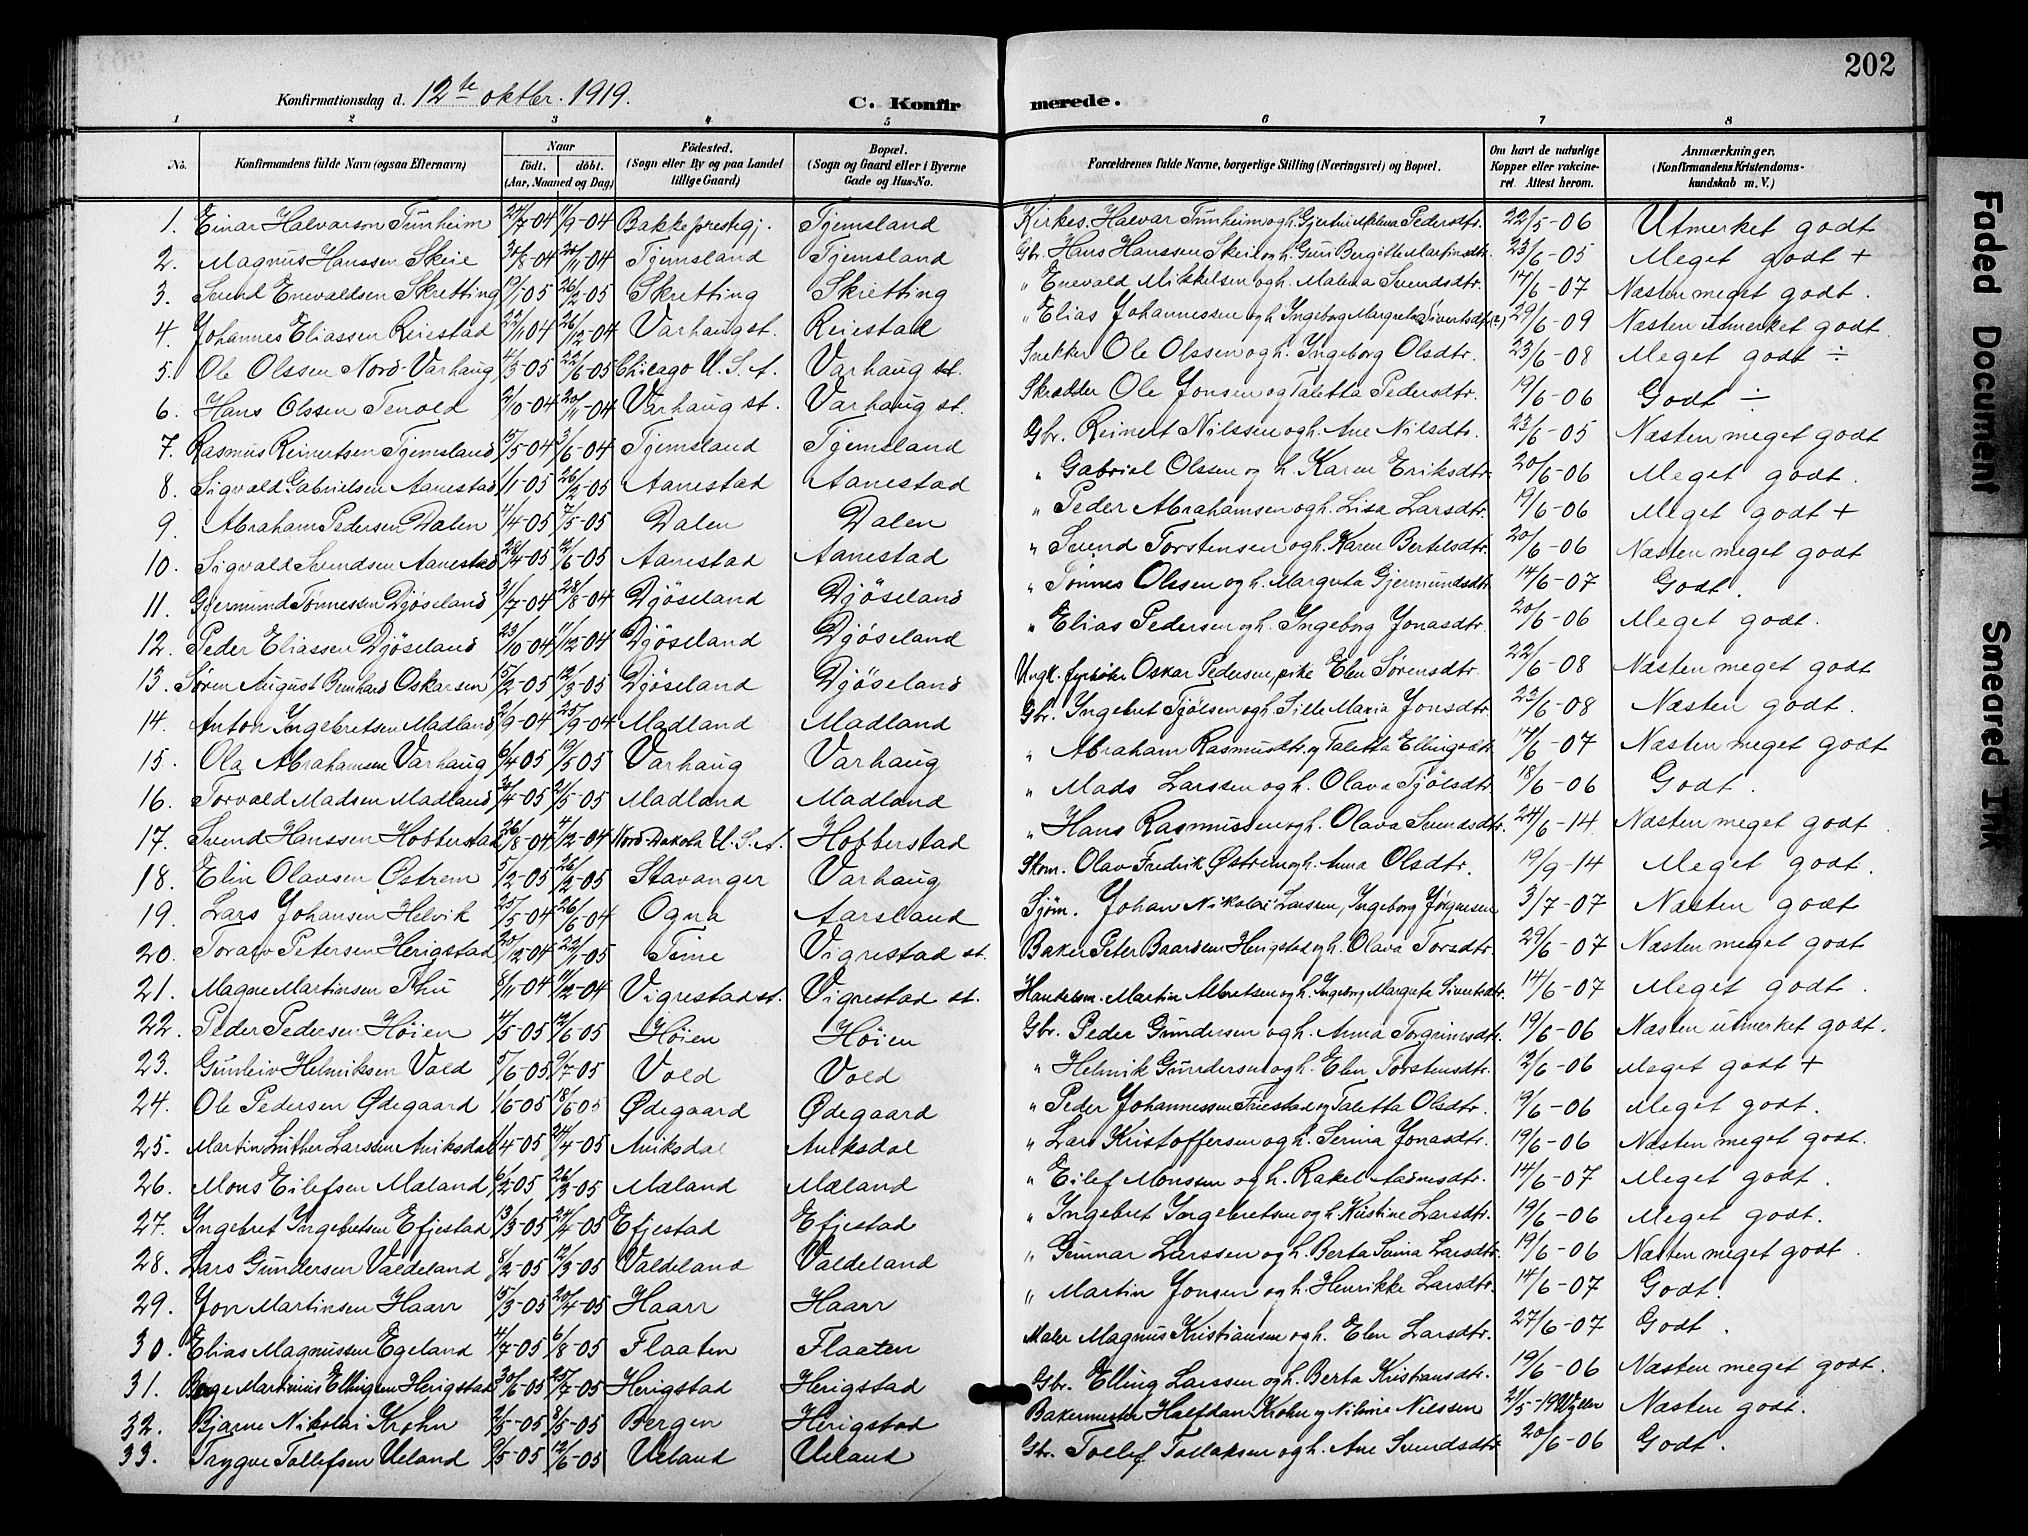 202
Konfirmationsdag d. 12te oktbr. 1919.
C. Konfirmerede.
1 2 3 4 5 6 7 8
No. | Konfirmandens fulde Navn (ogsaa Efternavn) | Naar født. døbt. (Aar, Maaned og Dag) | Fødested. (Sogn eller By og paa Landet tillige Gaard) | Bopæl. (Sogn og Gaard eller i Byerne Gade og Hus-No. | Forældrenes fulde Navne, borgerlige Stilling (Næringsvei) og Bopæl. | Om havt de naturlige Kopper eller vakcineret. Attest herom. | Anmærkninger. (Konfirmandens Kristendomskundskab m. V.)
1. Einar Halvarson Tunheim 24/7-04 11/9-04 Bakke prestegj. Tjemsland Kirkes. Halvar Tunheim og h. Gjertine Malena Pedersdtr. 22/5-06 Utmerket godt
2. Magnus Hanssen Skeie 30/8-04 20/11-04 Tjemsland Tjemsland Gbr. Hans Hanssen Skeie og h. Guri Bergitte Martinsdtr. 23/6-05 Meget godt +
3. Svend Enevaldsen Skretting 19/1 05 26/2-05 Skretting Skretting " Enevald Mikkelsen og h. Malena Svendsdtr. 14/6-07 Næsten meget godt.
4. Johannes Eliassen Reiestad 22/11 04 26/12-04 Varhaug st. Reiestad " Elias Johannessen og h. Ingeborg Margreta Sivertsdtr (?) 29/6-09 Næsten utmerket godt
5. Ole Olssen Nord-Varhaug 4/3-05 22/6-05 Chicago U.S.A. Varhaug st. Snekker Ole Olssen og h. Ingeborg Olsdtr. 23/6-08 Meget godt ÷
6. Hans Olssen Tenold 2/10-04 20/11-04 Varhaug st. Varhaug st. Skrædder Ole Jonsen og Taletta Pedersdtr. 19/6-06 Godt ÷
7. Rasmus Reinertsen Tjemsland 15/5-04 3/6-04 Tjemsland Tjemsland Gbr. Reinert Nilssen og h. Ane Nilsdtr. 23/6-05 Næsten meget godt
8. Sigvald Gabrielsen Aanestad 1/1-05 26/2-05 Aanestad Aanestad " Gabriel Olssen og h. Karen Eriksdtr. 20/6-06 Meget godt.
9. Abraham Pedersen Dalen 4/4-05 7/5-05 Dalen Dalen " Peder Abrahamsen og h. Lisa Larsdtr. 19/6-06 Meget godt +
10. Sigvald Svendsen Aanestad 28/4-05 12/6-05 Aanestad Aanestad " Svend Torstensen og h. Karen Bertelsdtr. 20/6-06 Næsten meget godt
11. Gjermund Tønnessen Djøseland 31/7-04 28/8-04 Djøseland Djøseland " Tønnes Olssen og h. Margreta Gjermundsdtr. 14/6-07 Godt.
12. Peder Eliassen Djøseland 23/10-04 11/12-04 Djøseland Djøseland " Elias Pedersen og h. Ingeborg Jonasdtr. 20/6-06 Meget godt.
13. Søren August Bernhard Oskarsen 15/2-05 12/3-05 Djøseland Djøseland Ungk. fyrbøter Oskar Pedersen, pike Elen Sørensdtr. 22/6-08 Næsten meget godt
14. Anton Ingebretsen Madland 2/9-04 25/9-04 Madland Madland Gbr. Ingebret Tjølsen og h. Sille Maria Jonsdtr. 23/6-08 Næsten godt.
15. Ola Abrahamsen Varhaug 6/4 05 19/5 05 Varhaug Varhaug " Abraham Rasmusdtr. og Taletta Ellingsdtr. 14/6-07 Næsten meget godt
16. Torvald Madsen Madland /4-05 21/5-05 Madland Madland " Mads Larssen og h. Olava Tjølsdtr. 18/6-06 Godt.
17. Svend Hanssen Hobberstad 26/8-04 4/12-04 Nord-Dakota U.S.A. Hobberstad " Hans Rasmussen og h. Olava Svendsdtr. 24/6-14 Næsten meget godt.
18. Elin Olavsen Østrem 5/2-05 26/2-05 Stavanger Varhaug Skom. Olav Fredrik Østrem og h. Anna Olsdtr. 19/9-14 Meget godt.
19. Lars Johansen Helvik 25/5-04 26/6-04 Ogna Aarsland Sjøm. Johan Nikolai Larssen, Ingeborg Jørgensen 3/7-07 Næsten godt
20. Toralv Petersen Herigstad 20/12-04 22/1-05 Time Vigrestad st. Baker Peter Baardsen Herigstad og h. Olava Torsdtr. 29/6-07 Næsten meget godt
21. Magne Martinsen Thu 8/11-04 11/12-04 Vigrestad st. Vigrestad st. Handelsm. Martin Albretsen og h. Ingeborg Margreta Sivertsdtr. 14/6-07 Meget godt.
22. Peder Pedersen Høien 4/5-05 12/6 05 Høien Høien Gbr. Peder Gundersen og h. Anna Torgrimsdtr. 19/6-06 Næsten utmerket godt.
23. Gunleiv Helmiksen Vold 5/6-05 9/7-05 Vold Vold " Helmik Gundersen og h. Elen Torstensdtr. 12/6-06 Meget godt +
24. Ole Pedersen Ødegaard 1/6-05 18/6 05 Ødegaard Ødegaard " Peder Johannessen Fuestad og Taletta Olsdtr. 19/6-06 Meget godt.
25. Martin Luther Larssen Aniksdal 1/4-05 24/4-05 Aniksdal Aniksdal " Lars Kristoffersen og h. Serina Jonasdtr. 19/6-06 Næsten meget godt.
26. Mons Eilefsen Mæland 6/2-05 26/3-05 Mæland Mæland " Eilef Monssen og h. Rakel Aadnesdtr. 14/6-07 Meget godt.
27. Ingebret Ingebretsen Efjestad 13/3-05 24/4-05 Efjestad Efjestad " Ingebret Ingebretsen og h. Kristine Larsdtr. 19/6-06 Meget godt.
28. Lars Gundersen Valdeland 8/2-05 12/3-05 Valdeland Valdeland " Gunnar Larssen og h. Berta Serina Larsdtr. 19/6-06 Næsten meget godt.
29. Jon Martinsen Haarr 15/3-05 20/4-05 Haarr Haarr " Martin Jonsen og h. Henrikke Larsdtr. 14/6-07 Godt.
30. Elias Magnussen Egeland 4/7-05 6/8-05 Flaaten Flaaten Maler Magnus Kristiansen og h. Elen Larsdtr. 27/6-07 Godt.
31. Martinius Ellingsen Herigstad 30/6-05 25/7-05 Herigstad Herigstad Gbr. Elling Larssen og h. Berta Kristiansdtr. 19/6-06 Næsten meget godt.
32. Bjarne Nikolai Krohn 2/5-05 8/5-05 Bergen Herigstad Bakermester Halfdan Krohn og Nilsine Nilssen 21/5-19 Næsten godt.
33. Trygve Tollefsen Ueland 9/5-05 12/6-05 Ueland Ueland Gbr. Tollef Tollaksen og h. Ane Svendsdtr. 20/6-06 Godt.
Faded Document
Smeared Ink